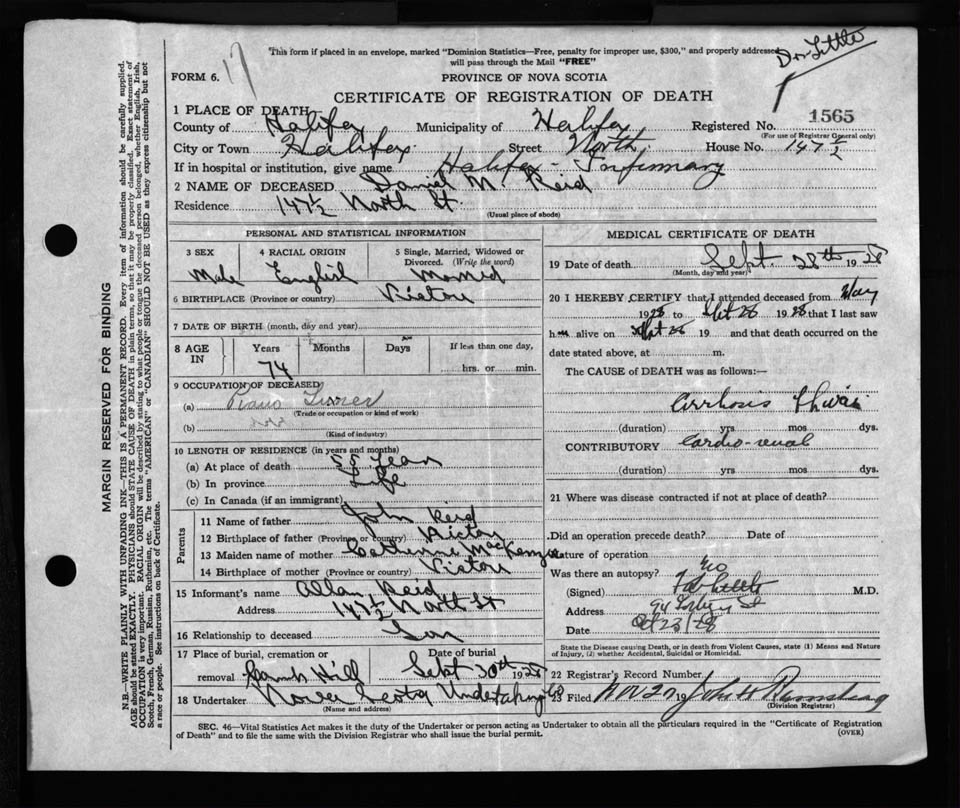 This form if placed in an envelope, marked "Dominion Statistics—Free, penalty for improper use, $300," and properly addressed
will pass through the Mail "FREE"
Dr. Little
17
FORM 6.
PROVINCE OF NOVA SCOTIA
CERTIFICATE OF REGISTRATION OF DEATH
1565
1 PLACE OF DEATH
County of Halifax Municipality of Halifax Registered No.
(For use of Registrar General only)
City or Town Halifax Street North House No. 147 1/2
If in hospital or institution, give name Halifax Infirmary
2 NAME OF DECEASED Daniel M. Reid
Residence 147 1/2 North St.
(Usual place of abode)
PERSONAL AND STATISTICAL INFORMATION
3 SEX 4 RACIAL ORIGIN 5 Single, Married, Widowed or Divorced. (Write the word)
Male English Married
6 BIRTHPLACE (Province or country) Pictou
7 DATE OF BIRTH (month, day and year)
8 AGE IN Years Months Days If less than one day,
74 hrs. or min.
9 OCCUPATION OF DECEASED
(a) Piano Tuner
(Trade or occupation or kind of work)
(b)
(Kind of industry)
10 LENGTH OF RESIDENCE (in years and months)
(a) At place of death 50 years
(b) In province Life
(c) In Canada (if an immigrant)
Parents
11 Name of father John Reid
12 Birthplace of father (Province or country) Pictou
13 Maiden name of mother Catherine MacKenzie
14 Birthplace of mother (Province or country) Pictou
15 Informant's name Allan Reid
Address 147 1/2 North St
16 Relationship to deceased Son
17 Place of burial, cremation or Date of burial
removal Camp Hill Sept 30th 1928
18 Undertaker Nova Scotia Undertaking Co
(Name and address)
MEDICAL CERTIFICATE OF DEATH
19 Date of death Sept. 28th 1928
(Month, day and year)
20 I HEREBY CERTIFY that I attended deceased from May
1928 to Sept 26 1928 that I last saw
h im alive on Sept 26 19 and that death occurred on the
date stated above, at m.
The CAUSE of DEATH was as follows:—
Cirrhosis of liver
(duration) yrs mos. dys.
CONTRIBUTORY Cardio-renal
(duration) yrs mos. dys.
21 Where was disease contracted if not at place of death?
Did an operation precede death? Date of
Nature of operation
Was there an autopsy? no
(Signed) M.D.
Address
Date Oct 23/28
State the Disease causing Death, or in Death from Violent Causes, state (1) Means and Nature
of Injury, (2) whether Accidental, Suicidal or Homicidal.
22 Registrar's Record Number
23 Filed Nov 27 19 John H
(Division Registrar)
SEC. 46—Vital Statistics Act makes it the duty of the Undertaker or person acting as Undertaker to obtain all the particulars required in the "Certificate of Registration
of Death" and to file the same with the Division Registrar who shall issue the burial permit.
(OVER)
MARGIN RESERVED FOR BINDING
N.B.—WRITE PLAINLY WITH UNFADING INK—THIS IS A PERMANENT RECORD. Every item of information should be carefully supplied.
AGE should be stated EXACTLY. PHYSICIANS should STATE CAUSE OF DEATH in plain terms, so that it may be properly classified. Exact statement of
OCCUPATION is very important. RACIAL ORIGIN will be described by stating to what people or tongue the deceased person belonged, whether English, Irish,
Scotch, French, German, Russian, Ruthenian, etc. The terms "AMERICAN" or "CANADIAN" SHOULD NOT BE USED as they express citizenship but not
a race or people. See instructions on back of Certificate.